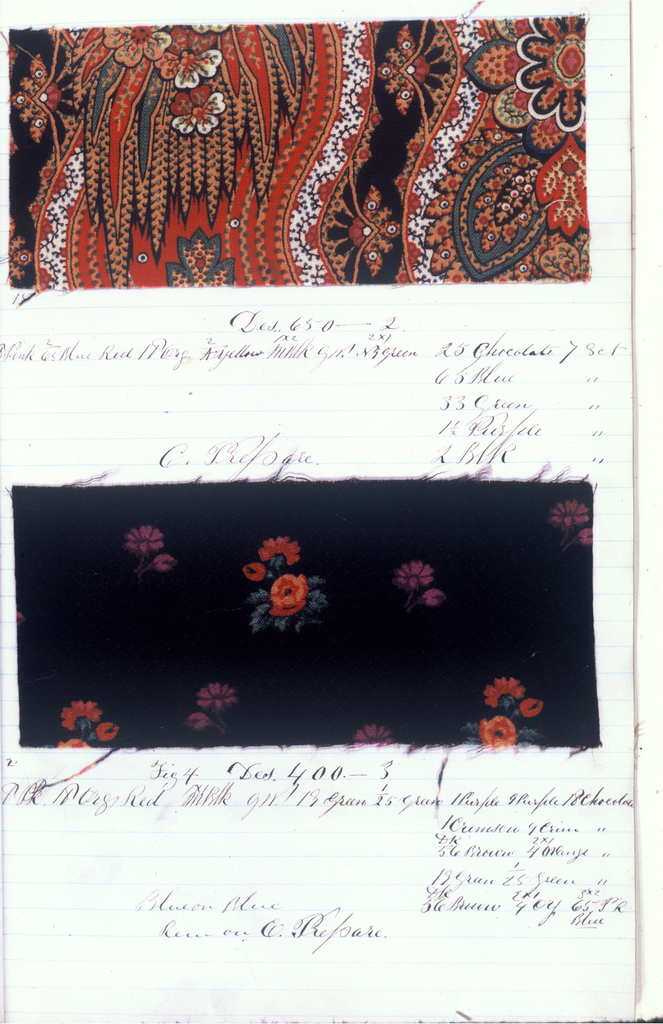 Des. 650 — 2
Pink 65 Blue Red Org. Yellow Blk 9 W! N3 Green 25 Chocolate 7 Set
65 Blue "
33 Green "
1½ Purple "
2 Blk "
C. Prepare.
Fig 4 Des. 400. — 3
Org Red Blk 9 W! 13 Green 25 Green 1 Purple 9 Purple 18 Chocolate
1 Crimson 9 Crim "
DK 2x1
56 Brown 4 Orange "
13 Green 25 Green "
DK 2x1 3x2
56 Brown 4 Og 65 PR
Blue
Blue on Blue
Run on C. Prepare.